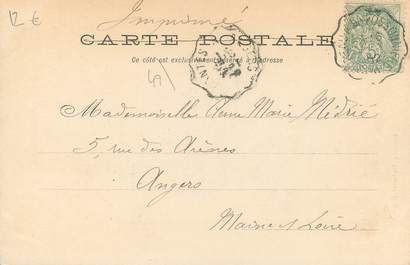 12 €
Imprimé
CARTE POSTALE
Ce côté est exclusivement réservé à l'adresse
49
Mademoiselle Anne Marie Médrié
5, rue des Arènes
Angers
Maine et Loire